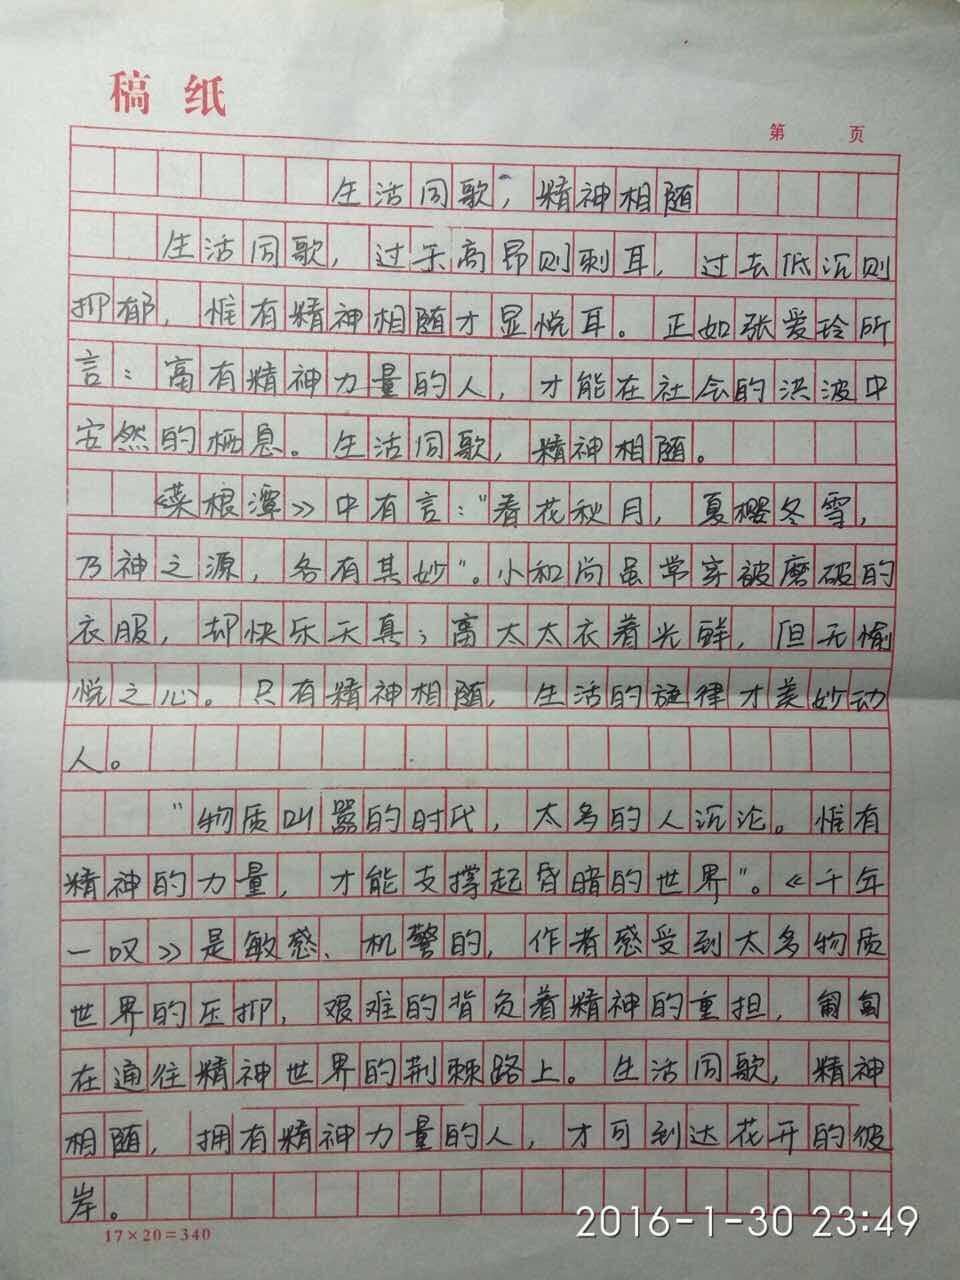 稿 纸
第 页
生活同歌，精神相随
生活同歌，过于高昂则刺耳，过去低沉则
抑郁，惟有精神相随才显悦耳。正如张爱玲所
言：富有精神力量的人，才能在社会的洪波中
安然的栖息。生活同歌，精神相随。
《菜根潭》中有言："春花秋月，夏樱冬雪，
乃神之源，各有其妙"。小和尚虽常穿被磨破的
衣服，却快乐天真；高太太衣着光鲜，但无愉
悦之心。只有精神相随，生活的旋律才美妙动
人。
"物质叫嚣的时代，太多的人沉沦。惟有
精神的力量，才能支撑起昏暗的世界"。《千年
一叹》是敏感、机警的，作者感受到太多物质
世界的压抑，艰难的背负着精神的重担，匍匐
在通往精神世界的荆棘路上。生活同歌，精神
相随，拥有精神力量的人，才可到达花开的彼
岸。
17×20=340
2016-1-30 23:49